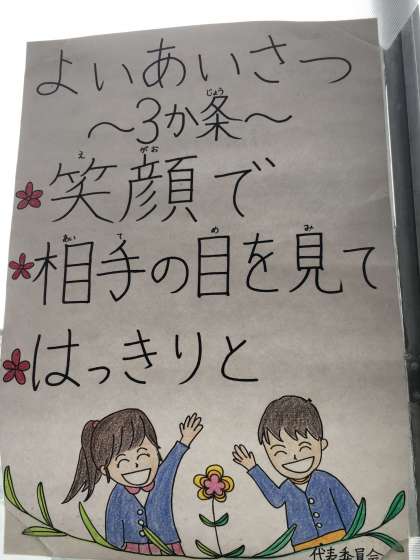 よいあいさつ
～3か条～
笑顔で
相手の目を見て
はっきりと
代表委員会